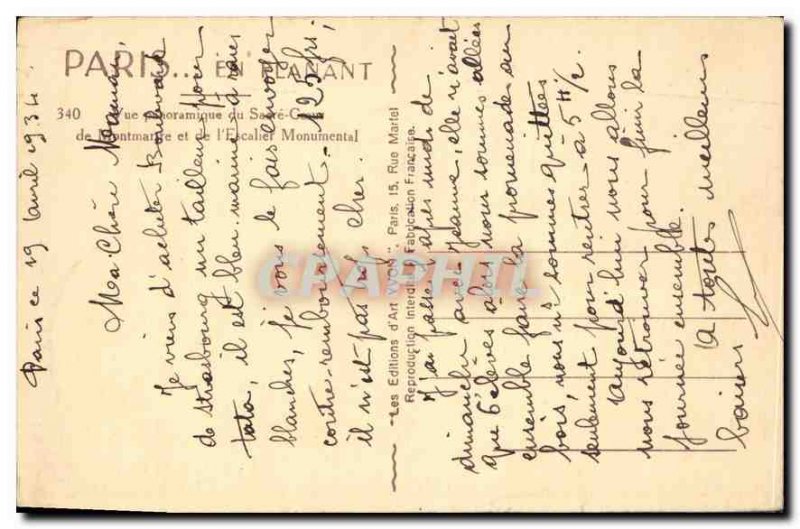 PARIS... EN FLANANT
340 Vue panoramique du Sacré-Cœur
de Montmartre et de l'Escalier Monumental
Paris ce 19 Avril 1934
Ma Chère Maman,
Je viens d'acheter Boulevard
de Strasbourg un tailleur pour
tata, il est bleu marine à raies
blanches, je vous le fais envoyer
contre-remboursement - 125 frs,
il n'est pas très cher.
"Les Editions d'Art YVON", Paris, 15, Rue Martel
Reproduction Interdite Fabrication Française.
J'ai passé l'après midi de
dimanche avec Jeanne, elle n'avait
que 5 élèves alors nous sommes allées
ensemble faire la promenade au
bois, nous n/s sommes quittées
seulement pour rentrer à 5 H 1/2.
aujourd'hui nous allons
nous retrouver pour finir la
journée ensemble.
à toutes meilleurs
baisers
CPAPHIL